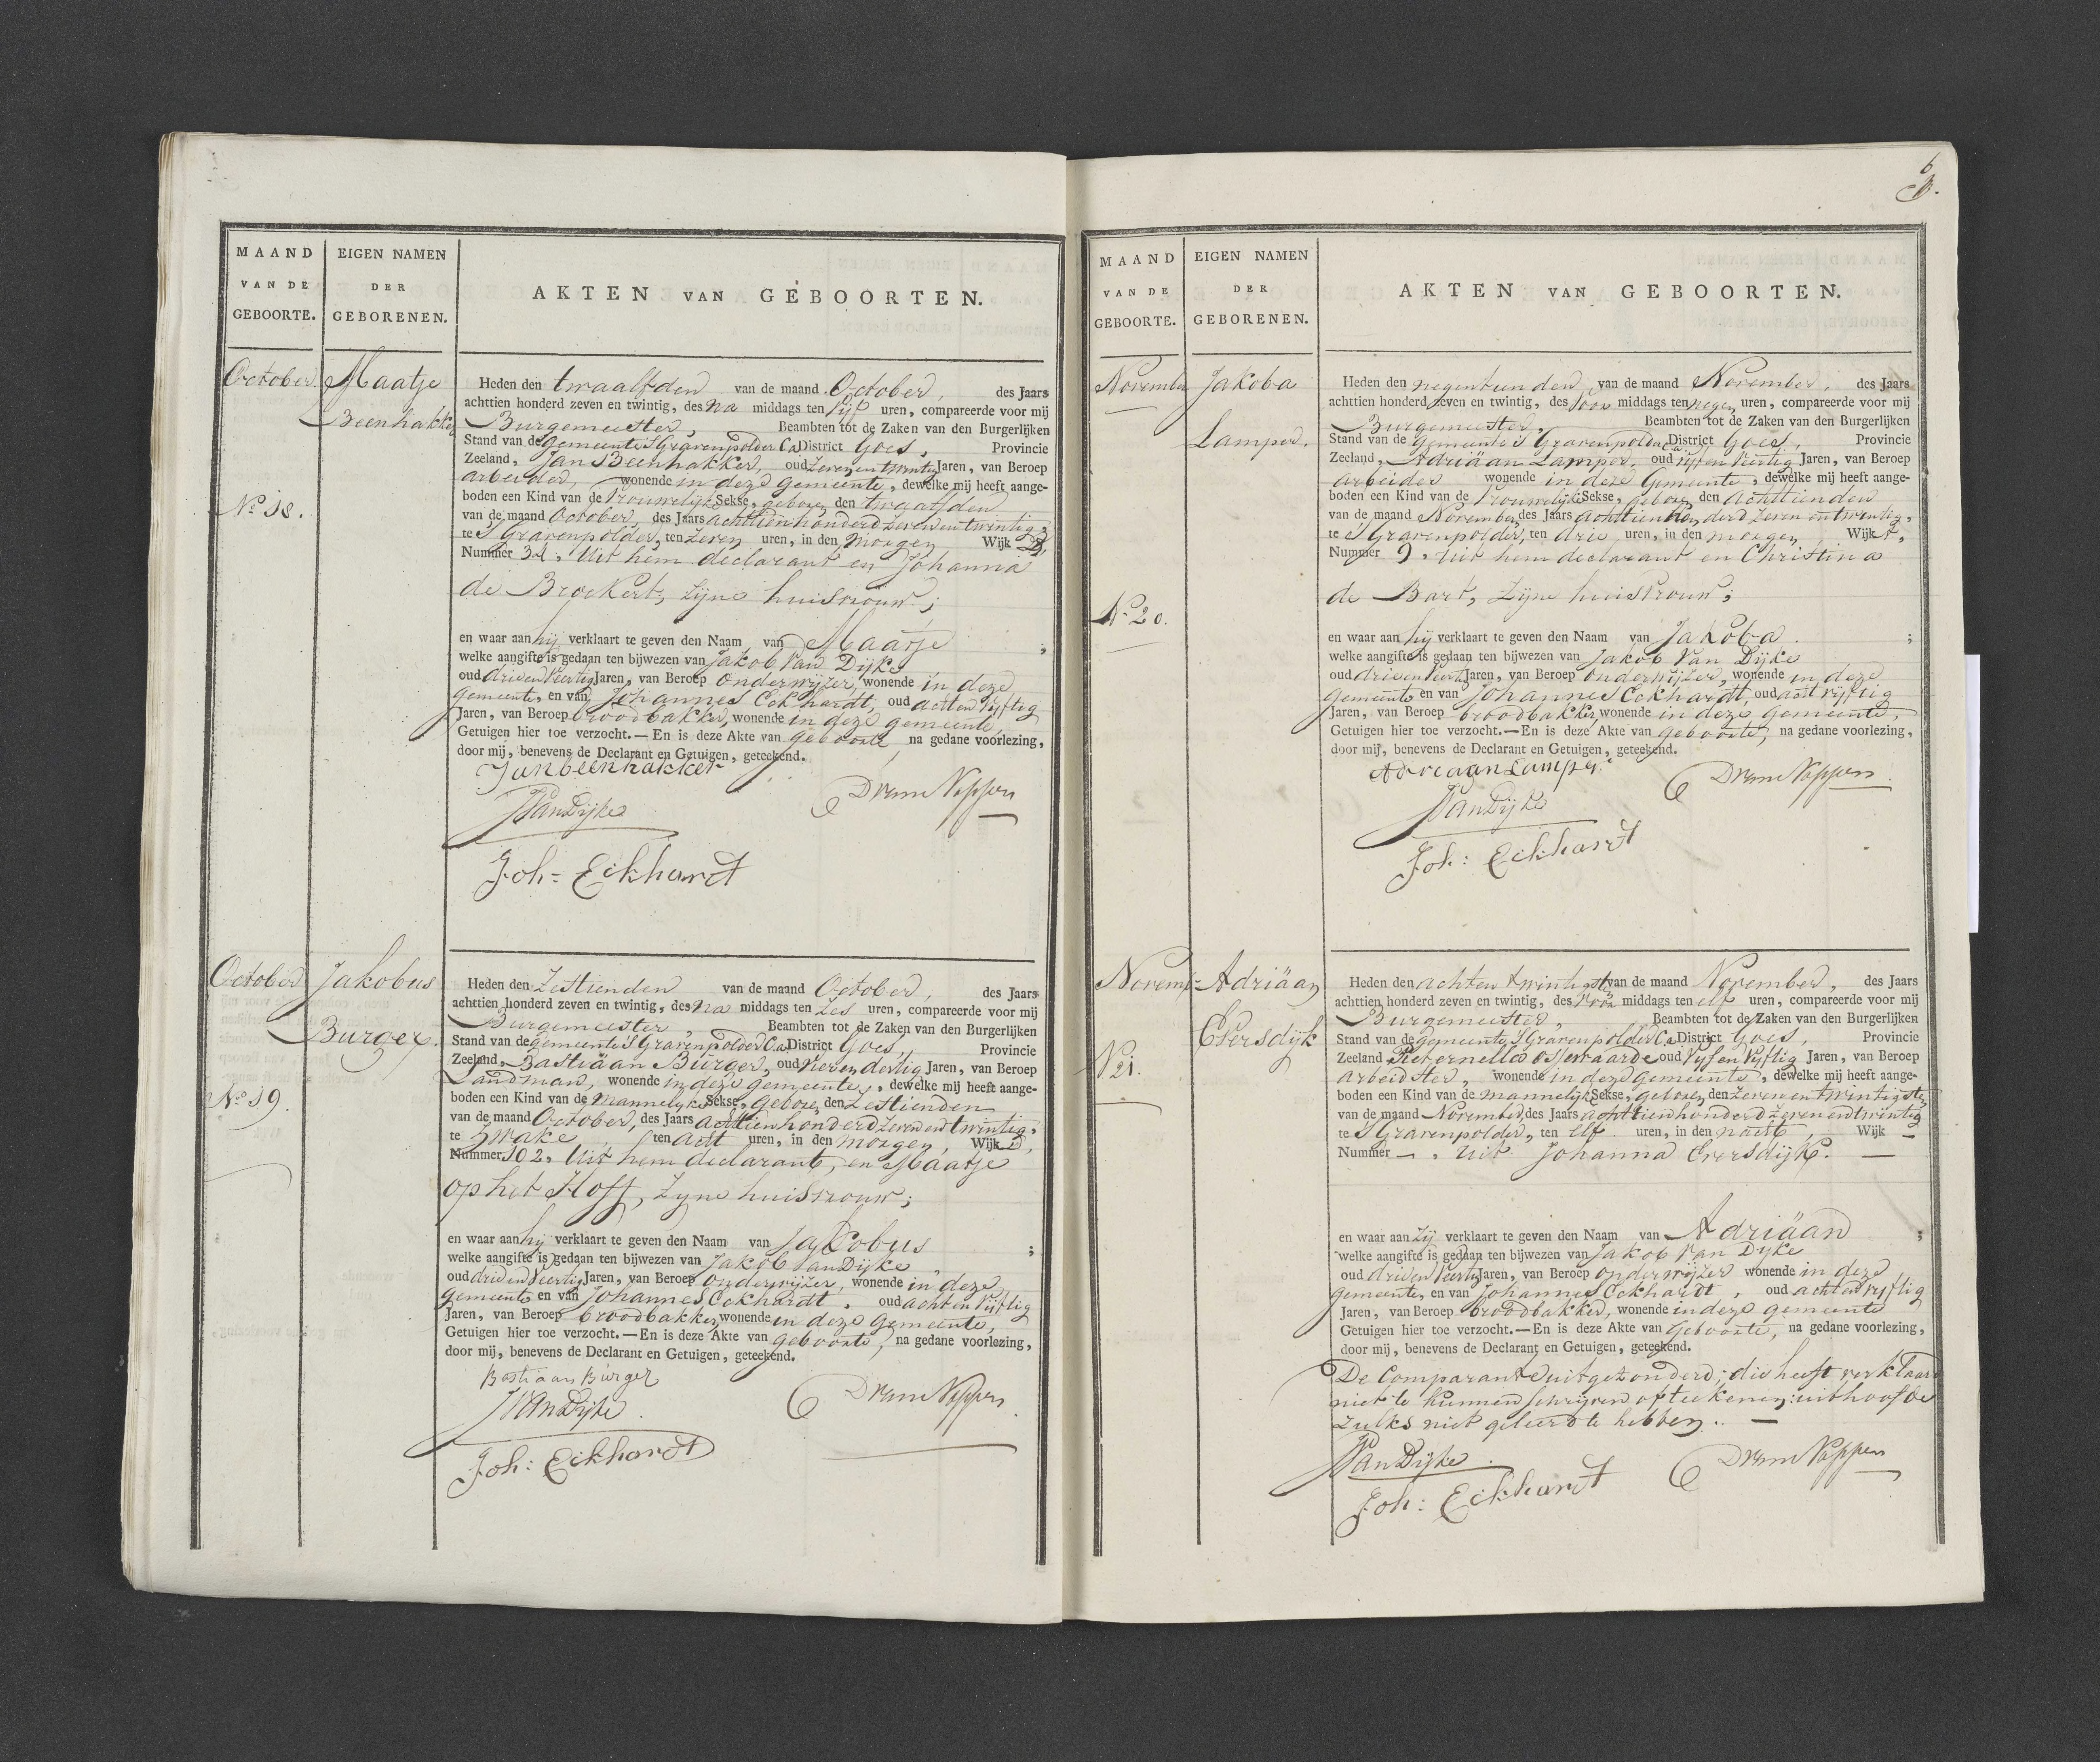 MAAND
VAN DE
GEBOORTE.
EIGEN NAMEN
DER
GEBORENEN.
AKTEN VAN GEBOORTEN.
October
No 18.
Maatje
Beenhakker
Heden den twaalfden van de maand October, des Jaars
achttien honderd zeven en twintig, des na middags ten vijf uren, compareerde voor mij
Burgemeester, Beambten tot de Zaken van den Burgerlijken
Stand van de gemeente 'S Gravenpolder Ca District Goes, Provincie
Zeeland, Jan Beenhakker, oud zeven en twintig Jaren, van Beroep
arbeider, wonende in deze gemeente, dewelke mij heeft aange-
boden een Kind van de Vrouwelijke Sekse, geboren den twaalfden
van de maand October, des Jaars achttien honderd zeven en twintig,
te 'S Gravenpolder, ten zeven uren, in den morgen Wijk
Nummer 32, Uit hem declarant en Johanna
de Broekert, zijne huisvrouw;
en waar aan hij verklaart te geven den Naam van Maatje ;
welke aangifte is gedaan ten bijwezen van Jakob Van Dijke
oud drie en Veertig Jaren, van Beroep Onderwijzer, wonende in deze
gemeente, en van Johannes Eckhardt, oud acht en Vijftig
Jaren, van Beroep broodbakker, wonende in deze gemeente,
Getuigen hier toe verzocht.—En is deze Akte van geboorte, na gedane voorlezing,
door mij, benevens de Declarant en Getuigen, geteekend.
Jan beenhakker
JVanDijke
Joh= Eckhardt
October
No 19.
Jakobus
Burger.
Heden den Zestienden van de maand October, des Jaars
achttien honderd zeven en twintig, des na middags ten zes uren, compareerde voor mij
Burgemeester, Beambten tot de Zaken van den Burgerlijken
Stand van de gemeente 'S Gravenpolder Ca District Goes, Provincie
Zeeland, Bastiäan Burger, oud Vier en dertig Jaren, van Beroep
Landman, wonende in deze gemeente, dewelke mij heeft aange-
boden een Kind van de mannelijke Sekse, geboren den Zestienden
van de maand October, des Jaars achttien honderd zeven en twintig,
te Zwake, ten acht uren, in den morgen, Wijk D,
Nummer 102, Uit hem declarant, en Maatje
op het Hoff, zijne huisvrouw;
en waar aan hij verklaart te geven den Naam van Jakobus ;
welke aangifte is gedaan ten bijwezen van Jakob Van Dijke
oud drie en Veertig Jaren, van Beroep Onderwijzer, wonende in deze
gemeente en van Johannes Eckhardt, oud acht en Vijftig
Jaren, van Beroep broodbakker, wonende in deze gemeente,
Getuigen hier toe verzocht.—En is deze Akte van geboorte, na gedane voorlezing,
door mij, benevens de Declarant en Getuigen, geteekend.
Bastiaan Burger
JVanDijke
Joh: Eckhardt
6
MAAND
VAN DE
GEBOORTE.
EIGEN NAMEN
DER
GEBORENEN.
AKTEN VAN GEBOORTEN.
November
No 20.
Jakoba
Lamper.
Heden den negentienden van de maand November, des Jaars
achttien honderd zeven en twintig, des Voor middags ten negen uren, compareerde voor mij
Burgemeester, Beambten tot de Zaken van den Burgerlijken
Stand van de gemeente 'S Gravenpolder Ca District Goes, Provincie
Zeeland, Adriäan Lamper, oud vijf en Veertig Jaren, van Beroep
arbeider wonende in deze Gemeente, dewelke mij heeft aange-
boden een Kind van de Vrouwelijke Sekse, geboren den achttienden
van de maand November, des Jaars achttien honderd zeven en twintig,
te 'S Gravenpolder, ten drie uren, in den morgen, Wijk
Nummer 9, Uit hem declarant en Christina
de Bart, zijne huisvrouw;
en waar aan hij verklaart te geven den Naam van Jakoba. ;
welke aangifte is gedaan ten bijwezen van Jakob Van Dijke
oud drie en Veertig Jaren, van Beroep Onderwijzer, wonende in deze
gemeente en van Johannes Eckhardt, oud acht en vijftig
Jaren, van Beroep broodbakker, wonende in deze gemeente,
Getuigen hier toe verzocht.—En is deze Akte van geboorte, na gedane voorlezing,
door mij, benevens de Declarant en Getuigen, geteekend.
Adriaan Lamper
JVanDijke
Joh: Eckhardt
Novem:
No 21.
Adriäan
Eversdijk
Heden den achten twintigsten van de maand November, des Jaars
achttien honderd zeven en twintig, des Voor middags ten elf uren, compareerde voor mij
Burgemeester, Beambten tot de Zaken van den Burgerlijken
Stand van de gemeente 'S Gravenpolder Ca District Goes, Provincie
Zeeland Pieternella Ossewaarde oud Vijf en Vijftig Jaren, van Beroep
Arbeidster, wonende in deze gemeente, dewelke mij heeft aange-
boden een Kind van de mannelijke Sekse, geboren den zeven en twintigsten
van de maand November, des Jaars achttien honderd zeven en twintig
te 'S Gravenpolder, ten elf uren, in den nacht, Wijk —
Nummer —, uit Johanna Eversdijk. —
en waar aan zij verklaart te geven den Naam van Adriäan ;
welke aangifte is gedaan ten bijwezen van Jakob Van Dijke
oud drie en Veertig Jaren, van Beroep Onderwijzer wonende in deze
gemeente, en van Johannes Eckhardt, oud acht en vijftig
Jaren, van Beroep broodbakker, wonende in deze gemeente
Getuigen hier toe verzocht.—En is deze Akte van Geboorte, na gedane voorlezing,
door mij, benevens de Declarant en Getuigen, geteekend.
De Comparante uitgezonderd; die heeft verklaard
niet te kunnen schrijven of teekenen: uit hoofde
zulks niet geleerd te hebben. —
JVanDijke
Joh: Eckhardt